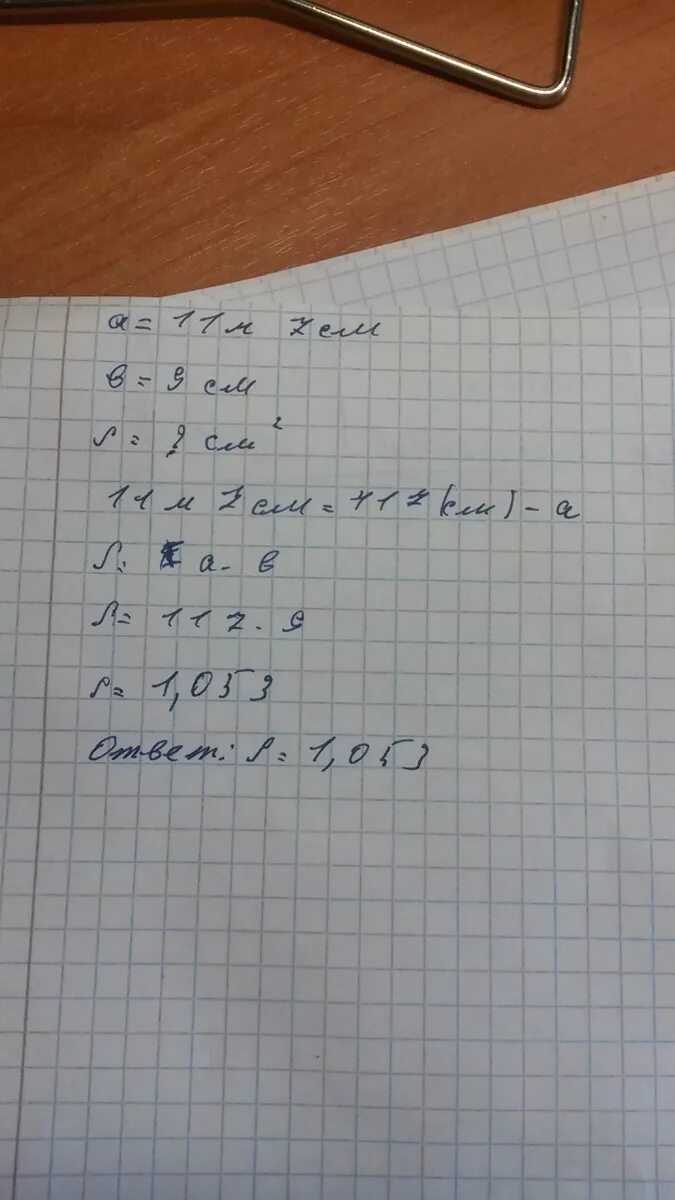 a = 11м 7см
в = 9 см
S = ? см²
11 м 7см = 117(см) - а
S = а · в
S = 117 · 9
S = 1,053
Ответ: S = 1,053